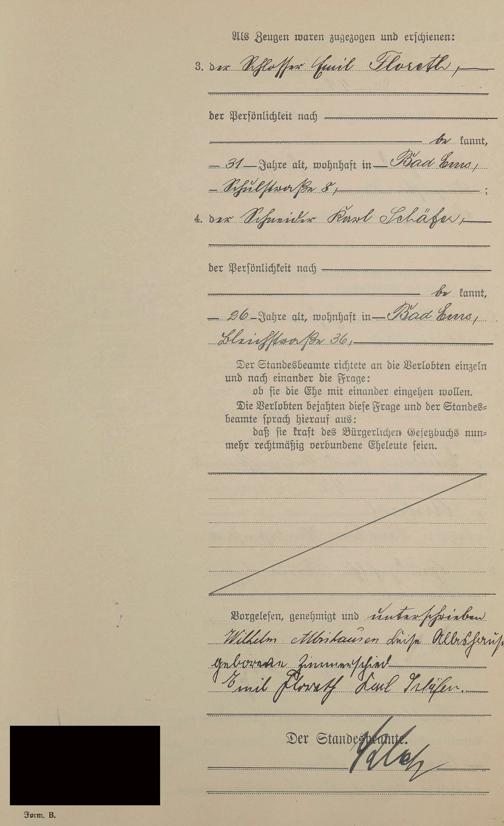 Als Zeugen waren zugezogen und erschienen:
3. der Schlosser Emil Floreth,
der Persönlichkeit nach
be kannt,
31 Jahre alt, wohnhaft in Bad Ems,
Schulstraße 8, ;
4. der Schneider Karl Schäfer,
der Persönlichkeit nach
be kannt,
26 Jahre alt, wohnhaft in Bad Ems,
Bleichstraße 36,
Der Standesbeamte richtete an die Verlobten einzeln
und nach einander die Frage:
ob sie die Ehe mit einander eingehen wollen.
Die Verlobten bejahten diese Frage und der Standes-
beamte sprach hierauf aus:
daß sie kraft des Bürgerlichen Gesetzbuchs nun-
mehr rechtmäßig verbundene Eheleute seien.
Vorgelesen, genehmigt und unterschrieben
Wilhelm
geborene Zimmerschied
Emil Floreth Karl Schäfer.
Der Standesbeamte.
Form. B.